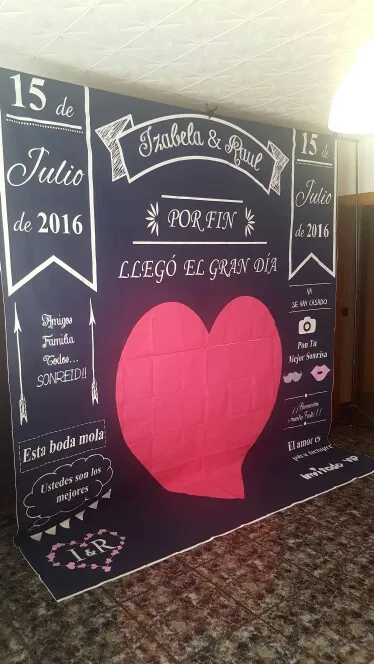 15 de
Julio
de 2016
Izabela & Raul
POR FIN
LLEGÓ EL GRAN DÍA
15 de
Julio
de 2016
Amigos
Familia
Todos...
SONREID!!
Esta boda mola
Ustedes son los
mejores
I&R
YA
SE HAN CASADO
Pon Tu
Mejor Sonrisa
El amor es
para siempre
Invitado VIP